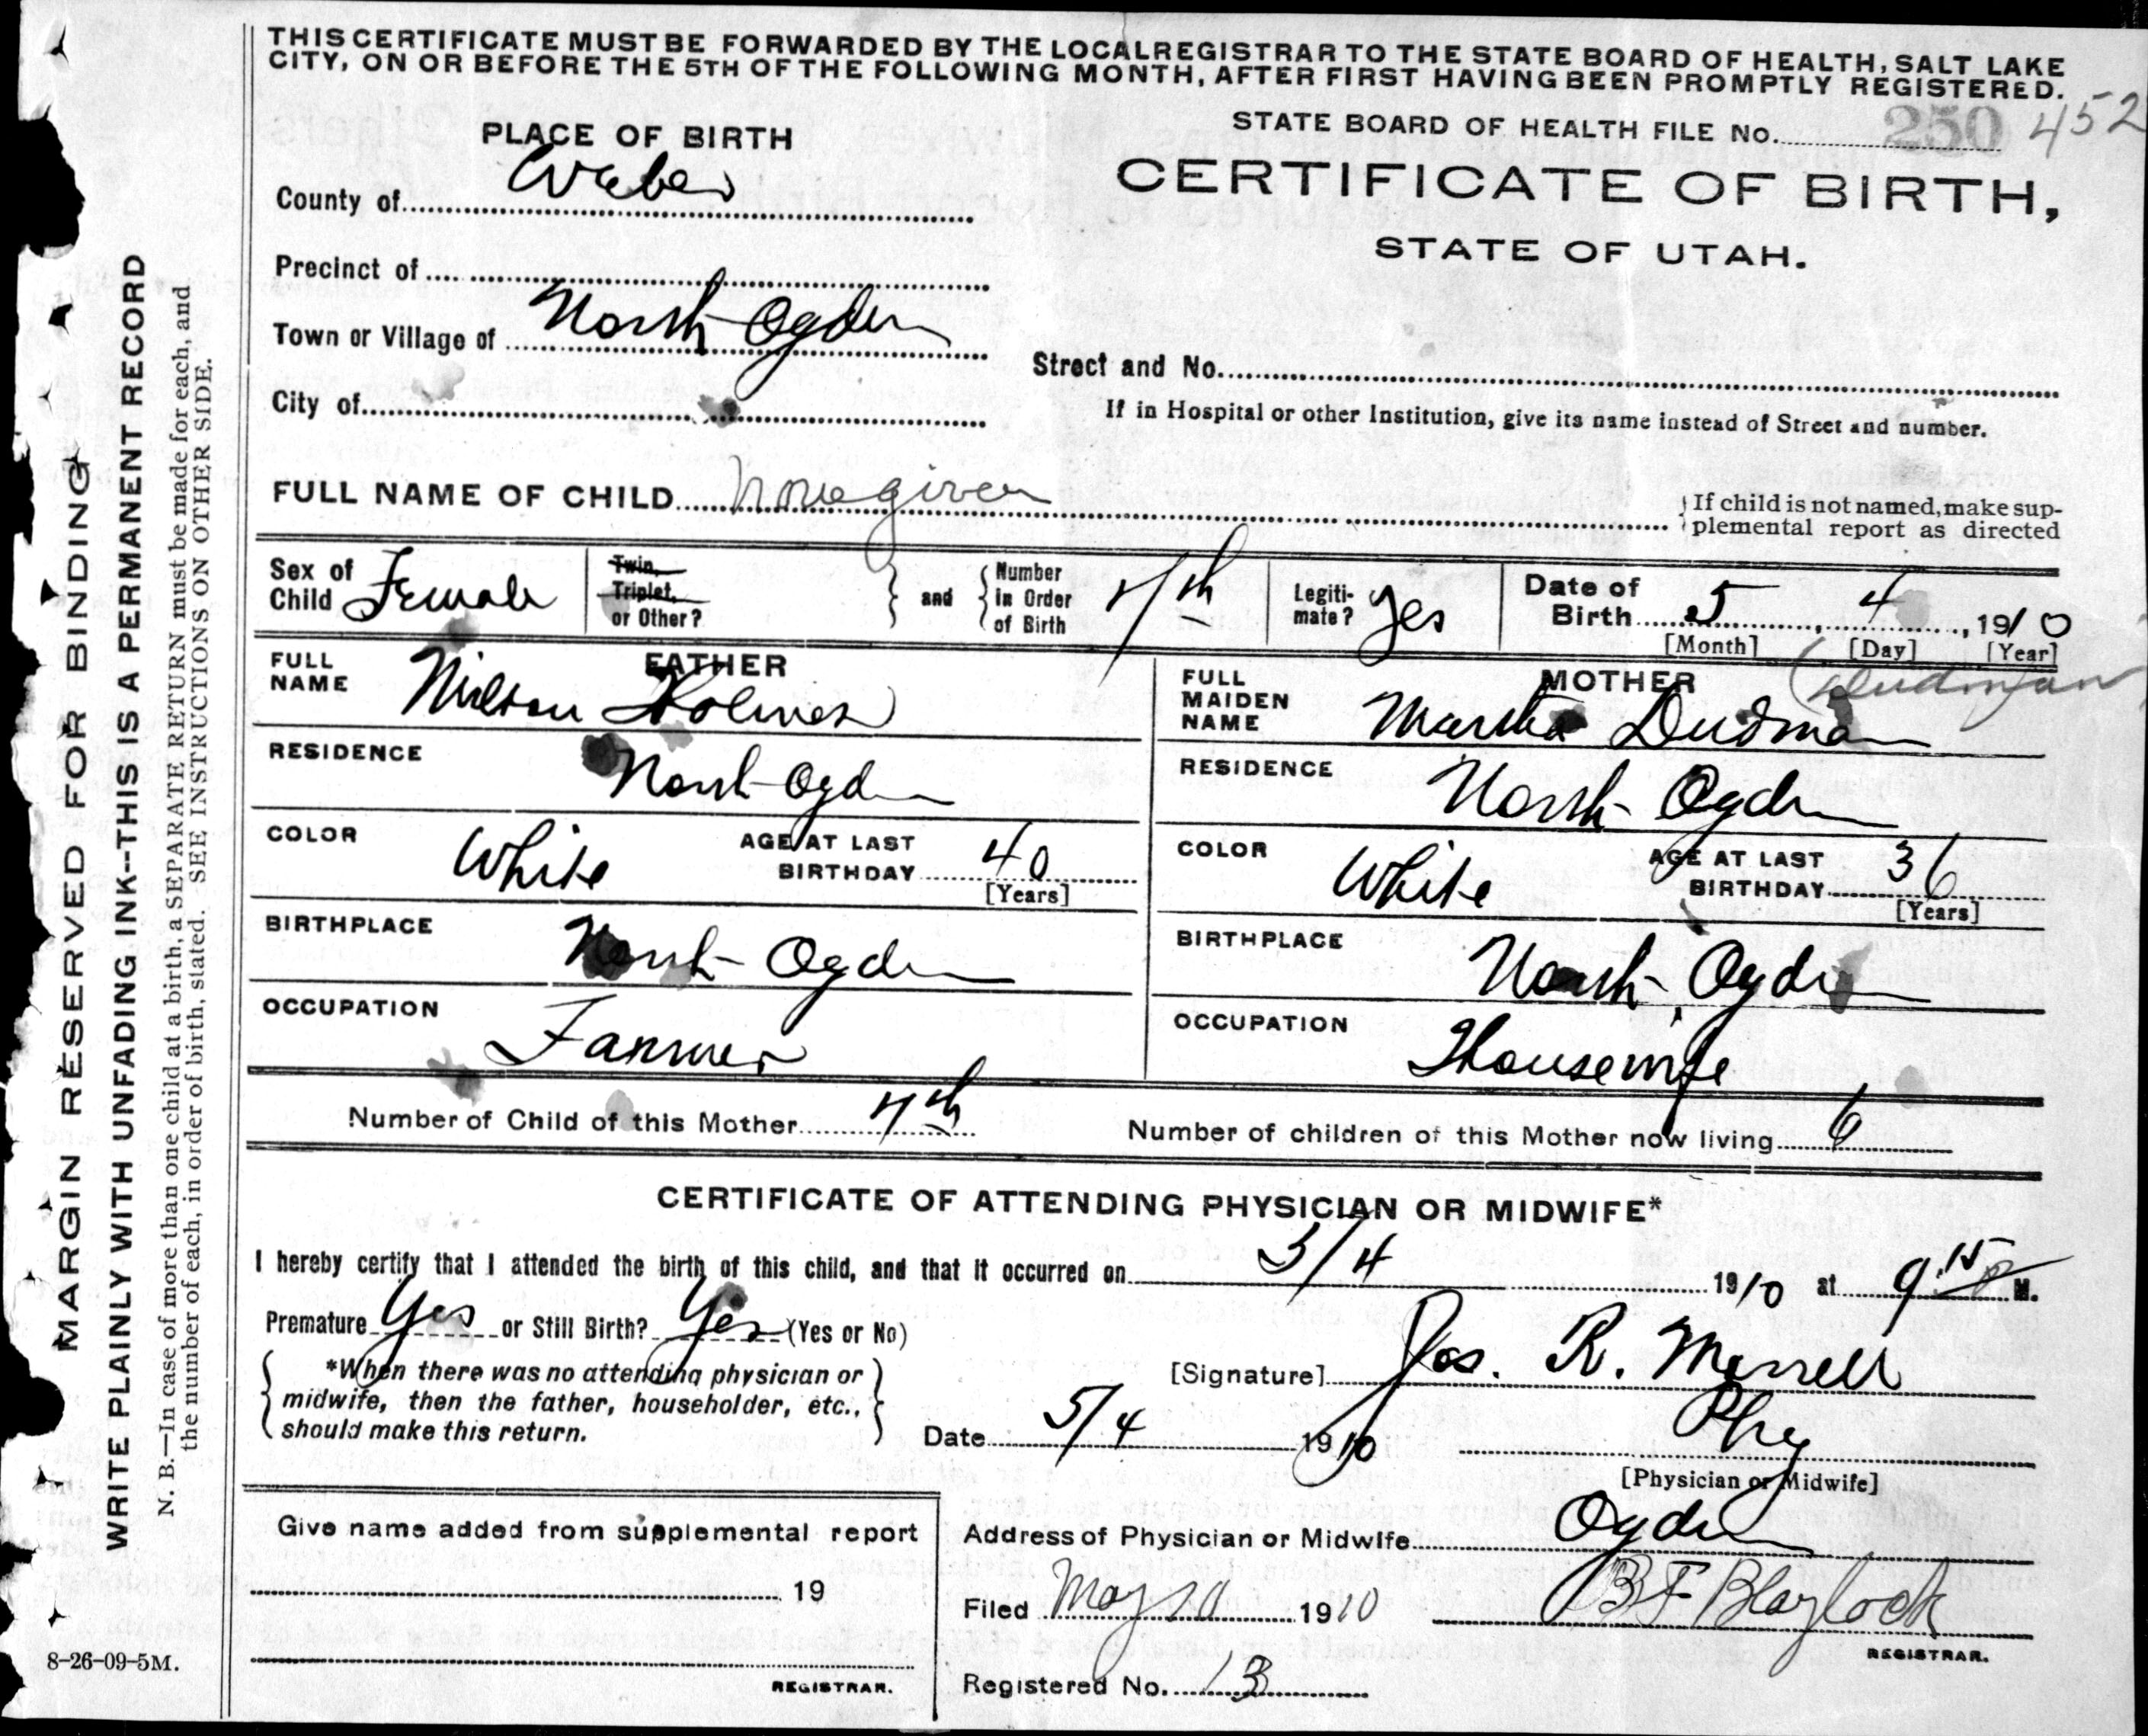 THIS CERTIFICATE MUST BE FORWARDED BY THE LOCAL REGISTRAR TO THE STATE BOARD OF HEALTH, SALT LAKE
CITY, ON OR BEFORE THE 5TH OF THE FOLLOWING MONTH, AFTER FIRST HAVING BEEN PROMPTLY REGISTERED.
STATE BOARD OF HEALTH FILE No. 250 452
PLACE OF BIRTH
CERTIFICATE OF BIRTH,
STATE OF UTAH.
County of Weber
Precinct of
Town or Village of North Ogden
Street and No.
City of
If in Hospital or other Institution, give its name instead of Street and number.
FULL NAME OF CHILD None given
If child is not named, make sup-
plemental report as directed
Sex of Child Female
Twin, Triplet, or Other?
and
Number in Order of Birth 7th
Legiti-mate? Yes
Date of Birth 5, 4, 1910
[Month] [Day] [Year]
FATHER
FULL NAME Wilson Holmes
RESIDENCE North Ogden
COLOR White
AGE AT LAST BIRTHDAY 40
[Years]
BIRTHPLACE North Ogden
OCCUPATION Farmer
MOTHER
(Dudman
FULL MAIDEN NAME Martha Dudman
RESIDENCE North Ogden
COLOR White
AGE AT LAST BIRTHDAY 36
[Years]
BIRTHPLACE North Ogden
OCCUPATION Housewife
Number of Child of this Mother 7th
Number of children of this Mother now living 6
CERTIFICATE OF ATTENDING PHYSICIAN OR MIDWIFE*
I hereby certify that I attended the birth of this child, and that it occurred on 5/4 1910 at 9:15 P M.
Premature Yes or Still Birth? Yes (Yes or No)
*When there was no attending physician or
midwife, then the father, householder, etc.,
should make this return.
[Signature] Jos. R. Morrell
Date 5/4 1910 Phy
[Physician or Midwife]
Give name added from supplemental report
19
REGISTRAR.
Address of Physician or Midwife Ogden
Filed May 10 1910 B F Blaylock
REGISTRAR.
Registered No. 13
8-26-09-5M.
MARGIN RESERVED FOR BINDING
WRITE PLAINLY WITH UNFADING INK--THIS IS A PERMANENT RECORD
N. B.—In case of more than one child at a birth, a SEPARATE RETURN must be made for each, and
the number of each, in order of birth, stated. SEE INSTRUCTIONS ON OTHER SIDE.